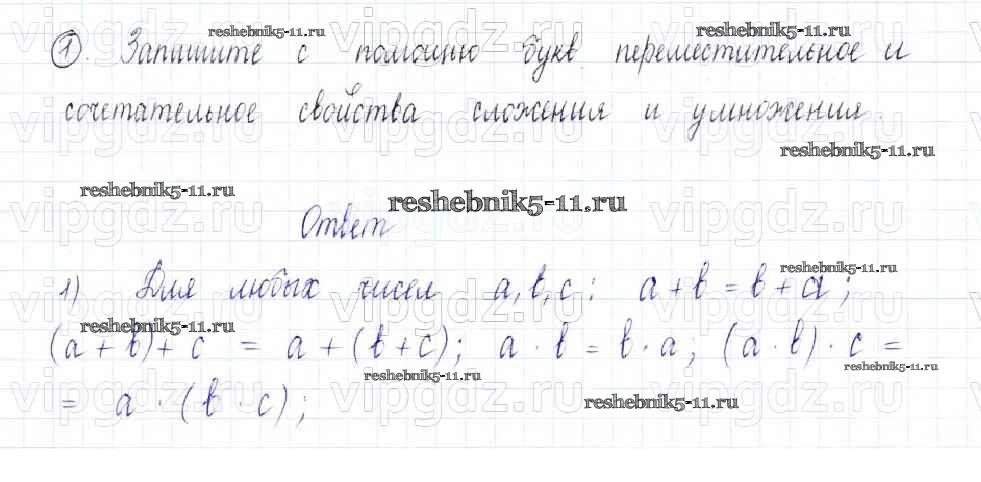 reshebnik5-11.ru reshebnik5-11.ru
① Запишите с помощью букв переместительное и
сочетательное свойства сложения и умножения.
reshebnik5-11.ru
reshebnik5-11.ru
reshebnik5-11.ru
Ответ
reshebnik5-11.ru
1) Для любых чисел a, b, c: a + b = b + a;
reshebnik5-11.ru
(a + b) + c = a + (b + c); a · b = b · a; (a · b) · c =
reshebnik5-11.ru reshebnik5-11.ru
= a · (b · c);
reshebnik5-11.ru
vipgdz.ru vipgdz.ru vipgdz.ru